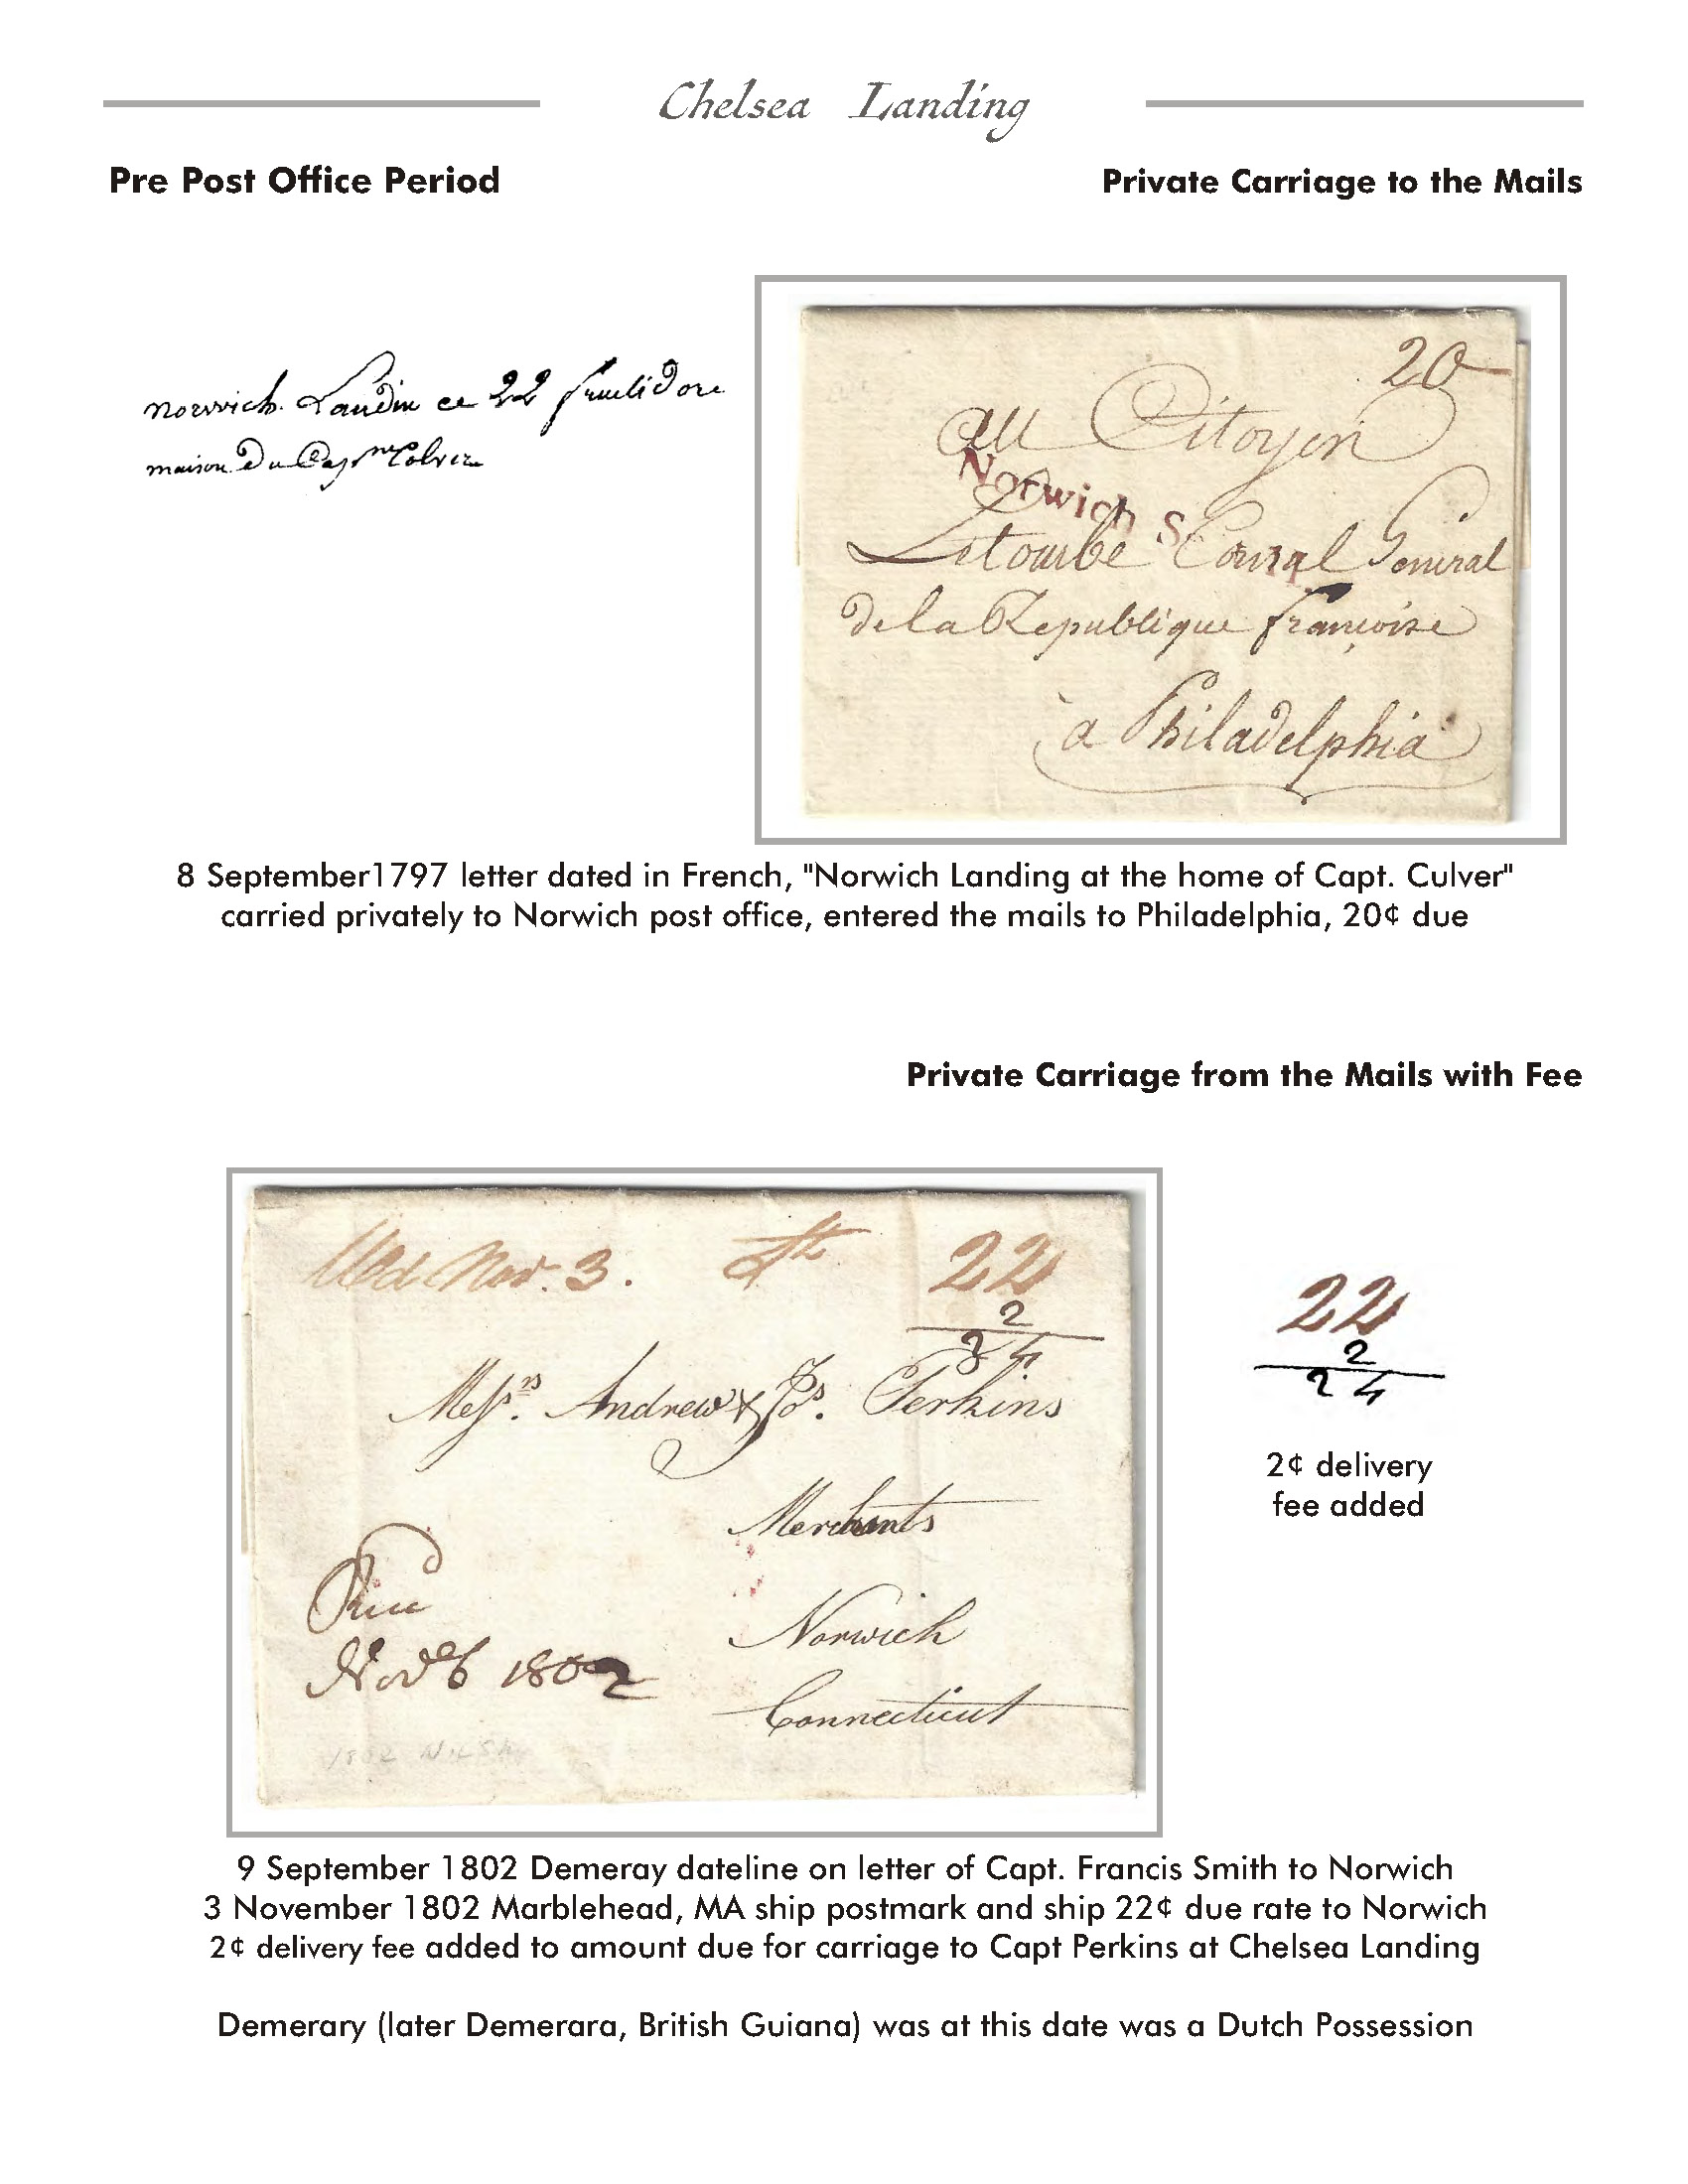 Chelsea Landing
Pre Post Office Period
Private Carriage to the Mails
norwich Landin ce 22 fructidore
maison du Capne Colver
20
Au Citoyen
Norwich S
Letombe Consul General
de la Republique françoise
à Philadelphia
8 September1797 letter dated in French, "Norwich Landing at the home of Capt. Culver"
carried privately to Norwich post office, entered the mails to Philadelphia, 20¢ due
Private Carriage from the Mails with Fee
Nov. 3. 22
2
24
Messrs. Andrew & Jos. Perkins
Merchants
Norwich
Connecticut
Nov 6 1802
22
2
24
2¢ delivery
fee added
9 September 1802 Demeray dateline on letter of Capt. Francis Smith to Norwich
3 November 1802 Marblehead, MA ship postmark and ship 22¢ due rate to Norwich
2¢ delivery fee added to amount due for carriage to Capt Perkins at Chelsea Landing
Demerary (later Demerara, British Guiana) was at this date was a Dutch Possession